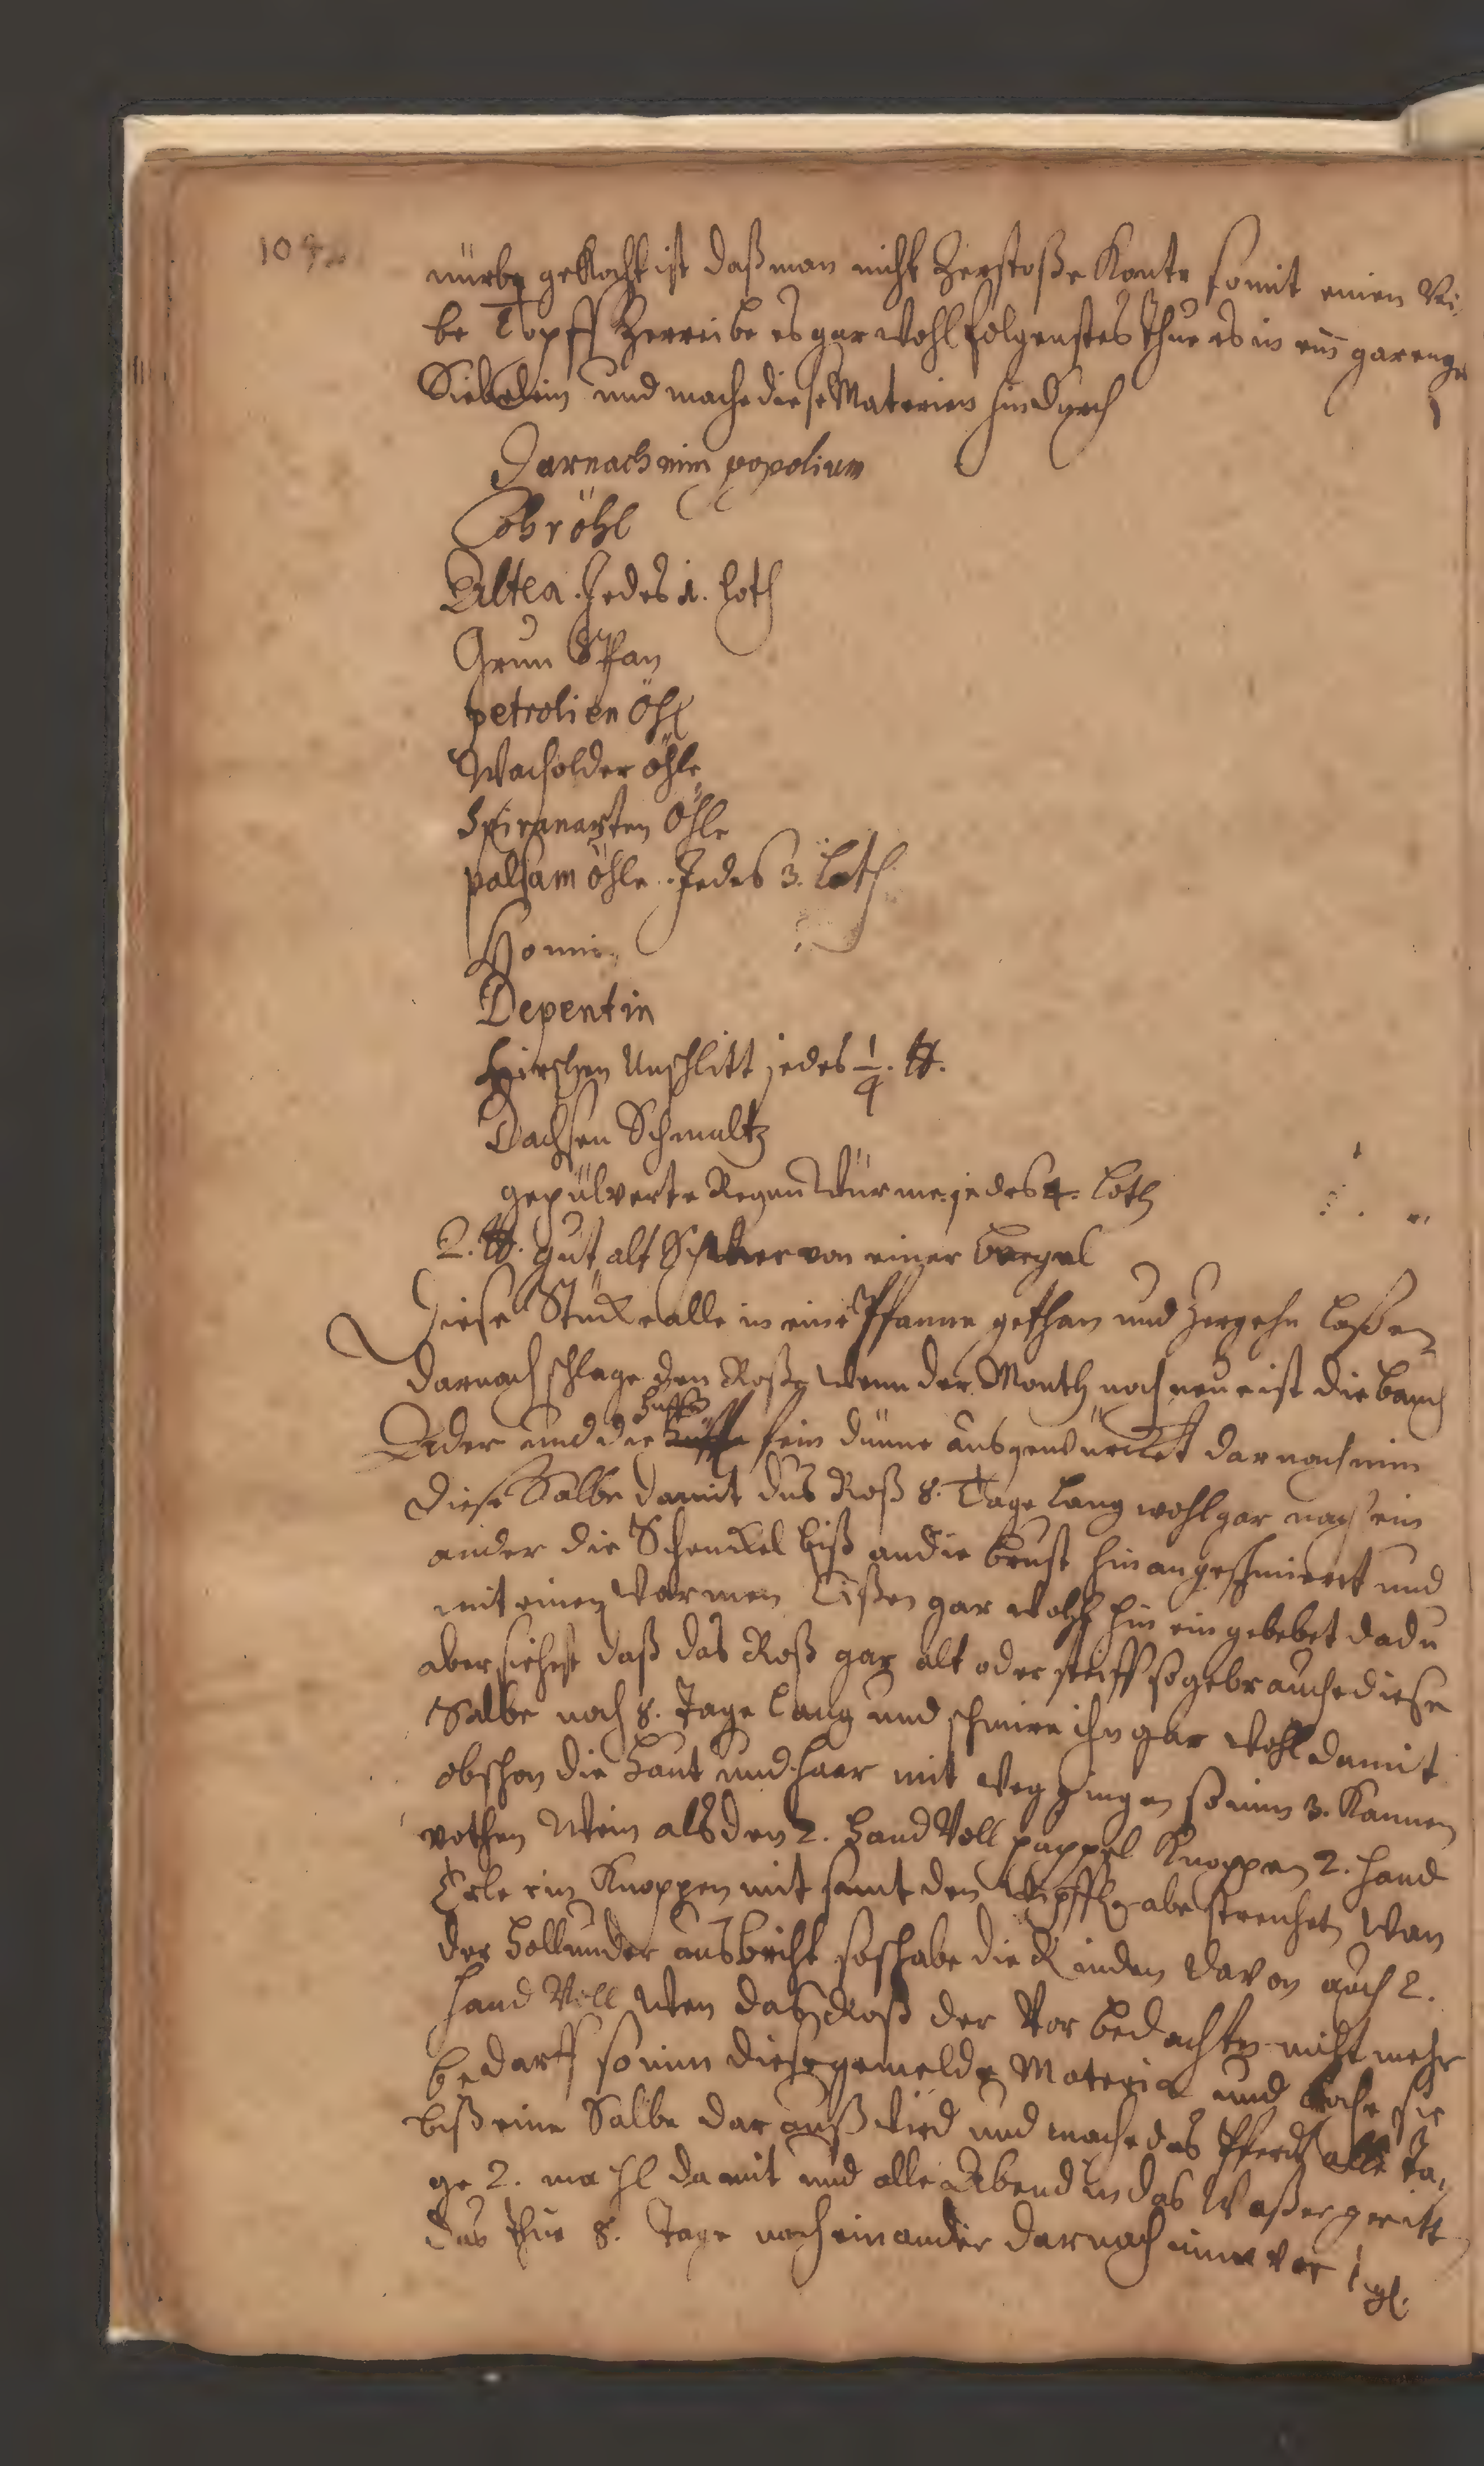 104
nürbe gekocht ist daß man nicht Zerstoße Konte so mit einen Rei
be Topff Zerreibe es gar wohl folgenstes thue es in ein gar enge
Siebelein und mache diese Materien hindurch
Darnach nim popolium
Lohröhl
Altea. Jedes 1. loth
Grun Span
petrolien Öhl
Wacholder öhle
Spicanarten Öhle
palsam öhle. Jedes 3. Loth
Honnig
Depentin
Hirschen Unschlitt jedes 1/4. ℔.
Dachsen Schmaltz
gepülverte Regen Würme. jedes 4. Loth
2. ℔. gut alt Schmer von einer
Diese Stücke alle in eine Pfanne gethan und zergehn laßen
darnach schlage den Roße wenn der Month noch neu ist die bauch
Ader und die Huffe fein dünne ausgewürcket darnach nim
diese Salbe damit das Roß 8. Tage lang wohl gar nach ein
ander die Schenckel biß an die brust hinan geschmiert und
mit einen Warmen Eißen gar wohl hin ein gebebet da du
aber siehest daß das Roß gar alt oder steiff so gebrauche diese
Salbe noch 8. Tage lang und schmire ihn gar wohl damit
obschon die Haut und Haar mit weg gingen so nim 3. Kannen
rothen Wein als den 2. Hand Voll pappel Knoppen 2. Hand
Erlein Knoppen mit samt den Wipffeln abe streuchet Wan
der Hollunder ausbricht so schabe die Rinden davon auch 2.
Hand Voll Wen daß Roß der Vor bedachten nicht mehr
bedarff so nim diese gemelde Materia und koche sie
biß eine Salbe dar auß wird und mache das Pferdt alle Ta,
ge 2. mahl damit und alle Abend in das Waßer geritt
das thue 8. Tage nach einander darnach nim vor 1 gl.